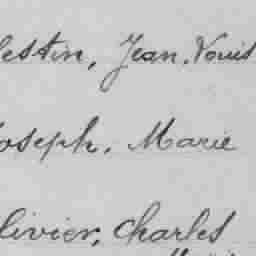 lestin, Jean, Louis
Joseph, Marie
livier, Charles